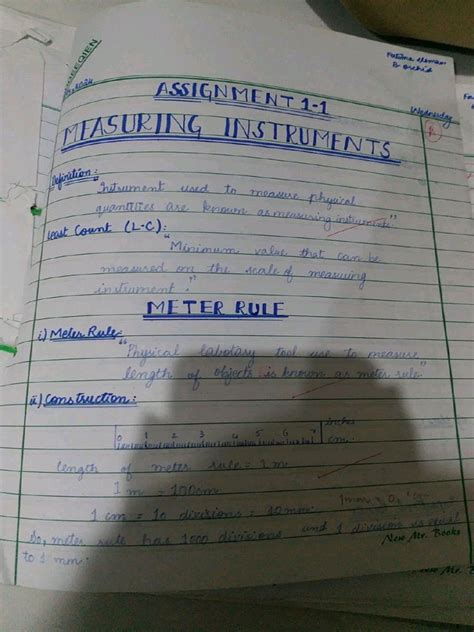 Fatima
B orchid
2024
Wednesday
ASSIGNMENT 1-1
MEASURING INSTRUMENTS
Definition:
"Instrument used to measure physical
quantities are known as measuring instruments"
Least Count (L.C):
"Minimum value that can be
measured on the scale of measuring
instrument."
METER RULE
i) Meter Rule:
"Physical labotary tool use to measure
length of objects is known as meter rule"
ii) Construction:
0 1 2 3 4 5 6 7 inches
cm
length of meter rule = 1 m
1 m = 100cm
1 cm = 10 divisions = 10mm
So, meter rule has 1000 divisions and 1 division is equal
to 1 mm.
New Mr. Books